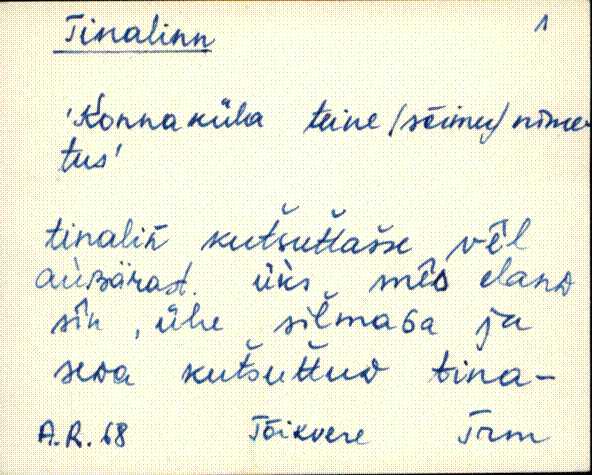 Tinalinn 1
'Konnaküla teine /sõimu/ nime-
tus'
tinaliǹ kutšuttasse vēl
auʙärast. ük̀s mēs eland
sīn, ühe silmaGa ja
seda kutšuttuᴅ tina-
A.R. 68 Tõikvere Trm